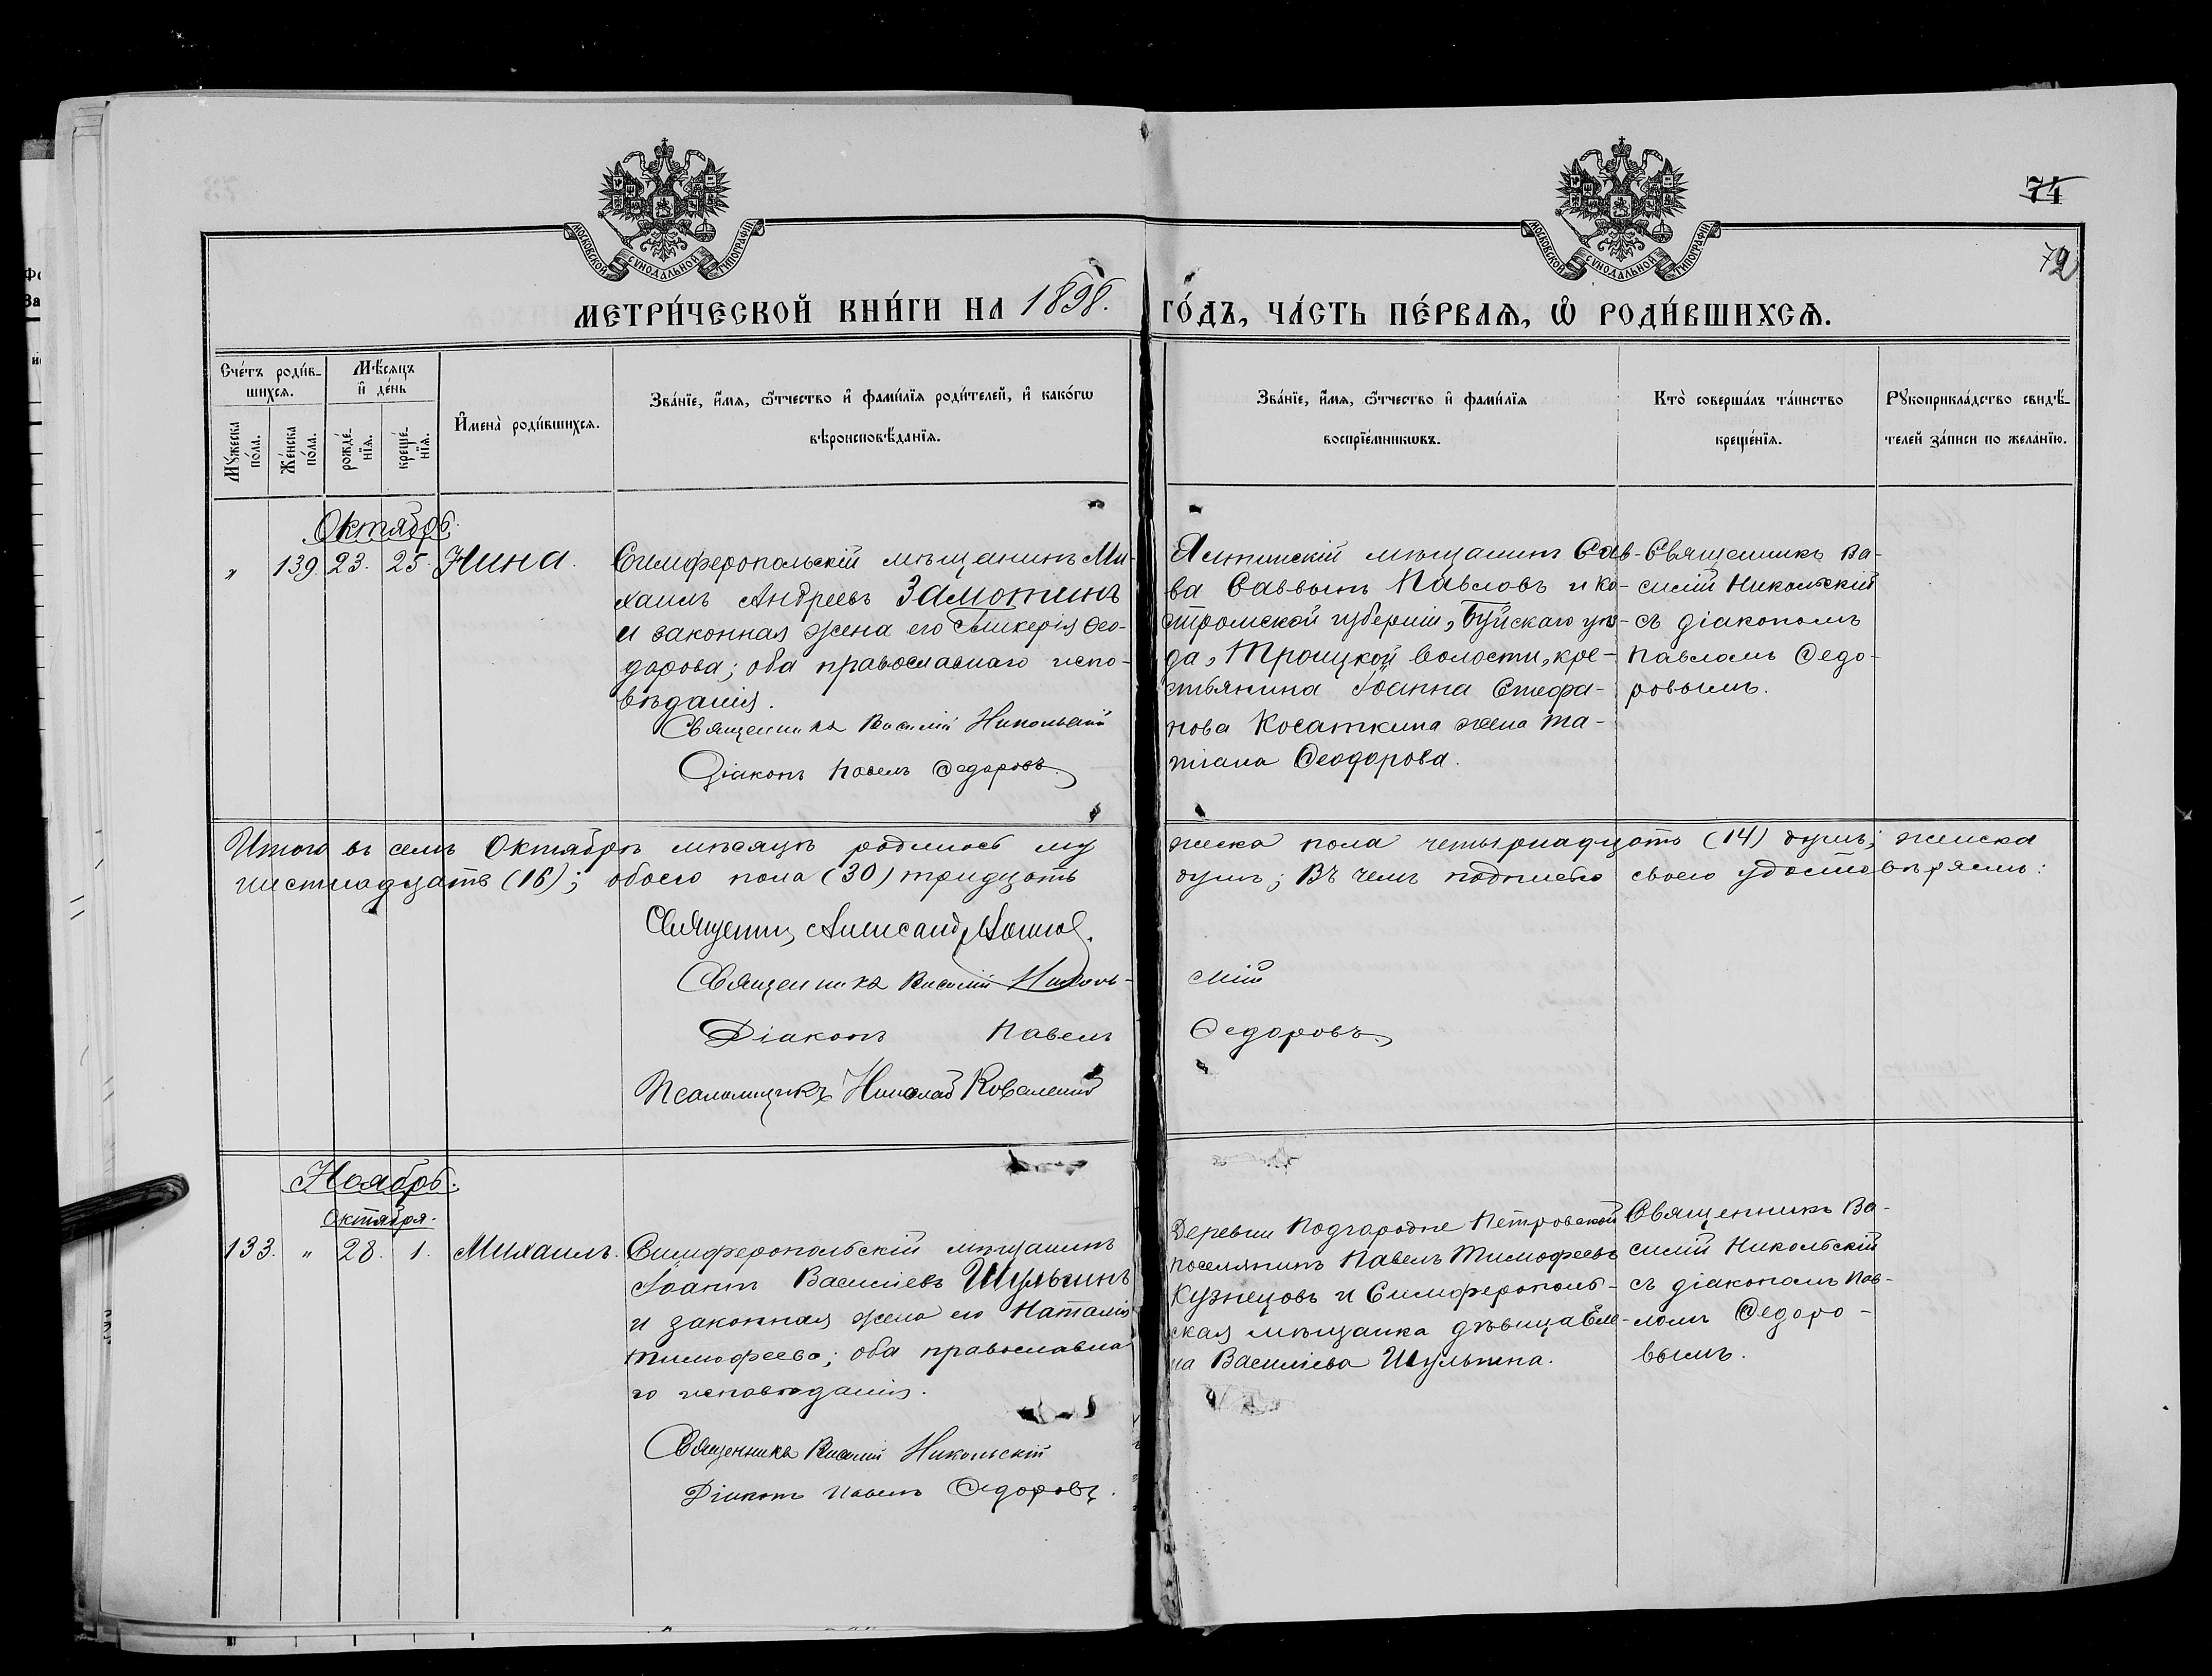 МОСКОВСКОЙ СѴНОДАЛЬНОЙ ТИПОГРАФІИ
МОСКОВСКОЙ СѴНОДАЛЬНОЙ ТИПОГРАФІИ
74
72
МЕТРИ́ЧЕСКОЙ КНИ́ГИ НА 1898. ГО́ДЪ, ЧА́СТЬ ПЕ́РВАѦ, Ѡ РОДИ́ВШИХСѦ.
Сче́тъ роди́в-
шихсѧ.
Мѣ́сѧцъ
и де́нь
Имена̀ роди́вшихсѧ.
Зва́нїе, и́мѧ, ѻ́тчество и фами́лїѧ роди́телей, и како́гѡ
вѣроисповѣ́данїѧ.
Зва́нїе, и́мѧ, ѻ́тчество и фами́лїѧ
воспрїе́мникѡвъ.
Кто̀ соверша́лъ та́инство
креще́нїѧ.
Рꙋкоприкла́дство свидѣ́-
телей за́писи по жела́нїю.
Мꙋ́жеска
по́ла.
Же́нска
по́ла.
рожде́-
нїѧ.
креще́-
нїѧ.
Октябрь.
" 139. 23. 25. Нина.
Симферопольскій мѣщанинъ Ми-
хаилъ Андреевъ Замотинъ
и законная жена его Гликерія Ѳео-
дорова; оба православнаго испо-
вѣданія.
Священникъ Василій Никольскій
Діаконъ Павелъ Ѳедоровъ.
Ялтинскій мѣщанинъ Сав-
ва Саввинъ Павловъ и Ко-
стромской губерніи, Буйскаго уѣз-
да, Троицкой волости, кре-
стьянина Іоанна Стефа-
нова Косаткина жена Та-
тіана Ѳеодорова.
Священникъ Ва-
силій Никольскій
съ діакономъ
Павломъ Ѳедо-
ровымъ.
Итого въ семъ Октябрѣ мѣсяцѣ родилось му жеска пола четырнадцать (14) душъ; женска
шестнадцать (16); обоего пола (30) тридцать душъ; Въ чемъ подписью своею удостовѣряемъ:
Священникъ Александръ
Священникъ Василій Николь- скій
Діаконъ Павелъ Ѳедоровъ.
Псаломщикъ Николай
Ноябрь.
Октября.
133. " 28. 1. Михаилъ.
Симферопольскій мѣщанинъ
Іоаннъ Василіевъ Шульгинъ
и законная жена его Наталія
Тимофеева; оба православна
го исповѣданія.
Священникъ Василій Никольскій
Діаконъ Павелъ Ѳедоровъ.
Деревни Подгородне Петровской
поселянинъ Павелъ Тимофеевъ
Кузнецовъ и Симферополь-
ская мѣщанка дѣвица Еле-
на Василіева Шульгина.
Священникъ Ва-
силій Никольскій
съ діакономъ Пав-
ломъ Ѳедоро-
вымъ.